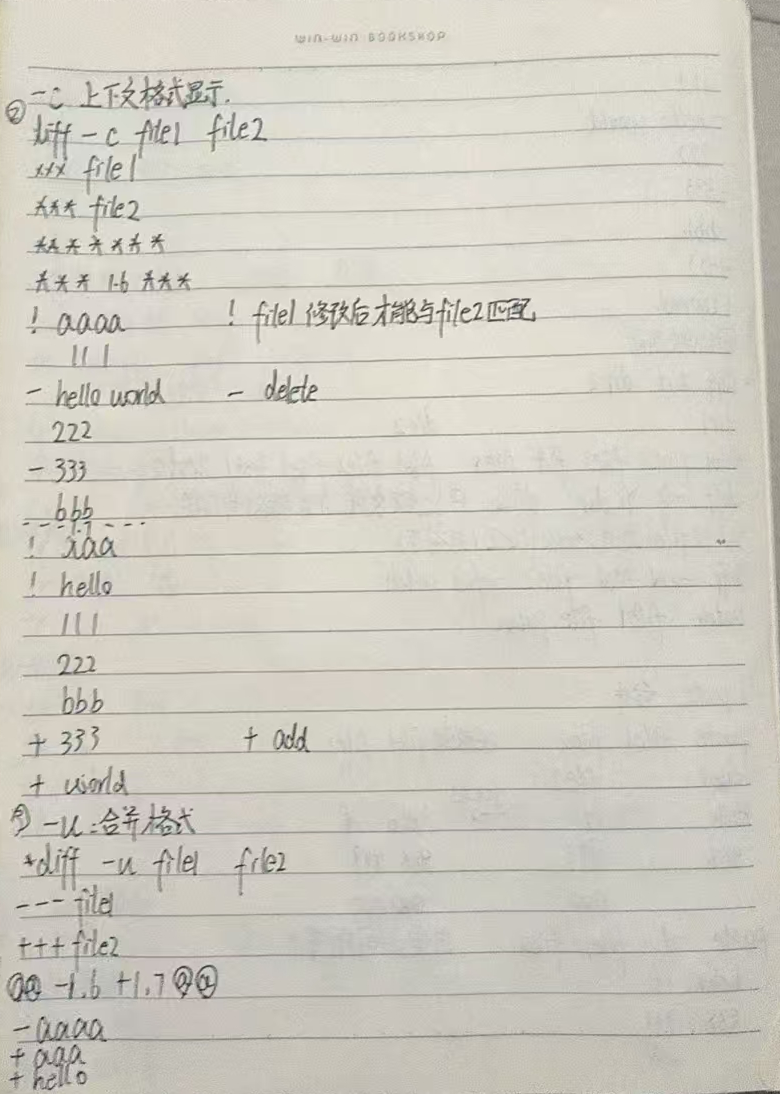 WIN-WIN BOOKSHOP
② -c 上下文格式显示.
diff -c file1 file2
*** file1
*** file2
*******
*** 1.6 ***
! aaaa ! file1 修改后才能与file2匹配
111
- hello world - delete
222
- 333
bbb
--- 1.7 ---
! aaa
! hello
111
222
bbb
+ 333 + add
+ world
③ -u:合并格式
*diff -u file1 file2
--- file1
+++ file2
@@ -1.6 +1.7 @@
- aaaa
+ aaa
+ hello